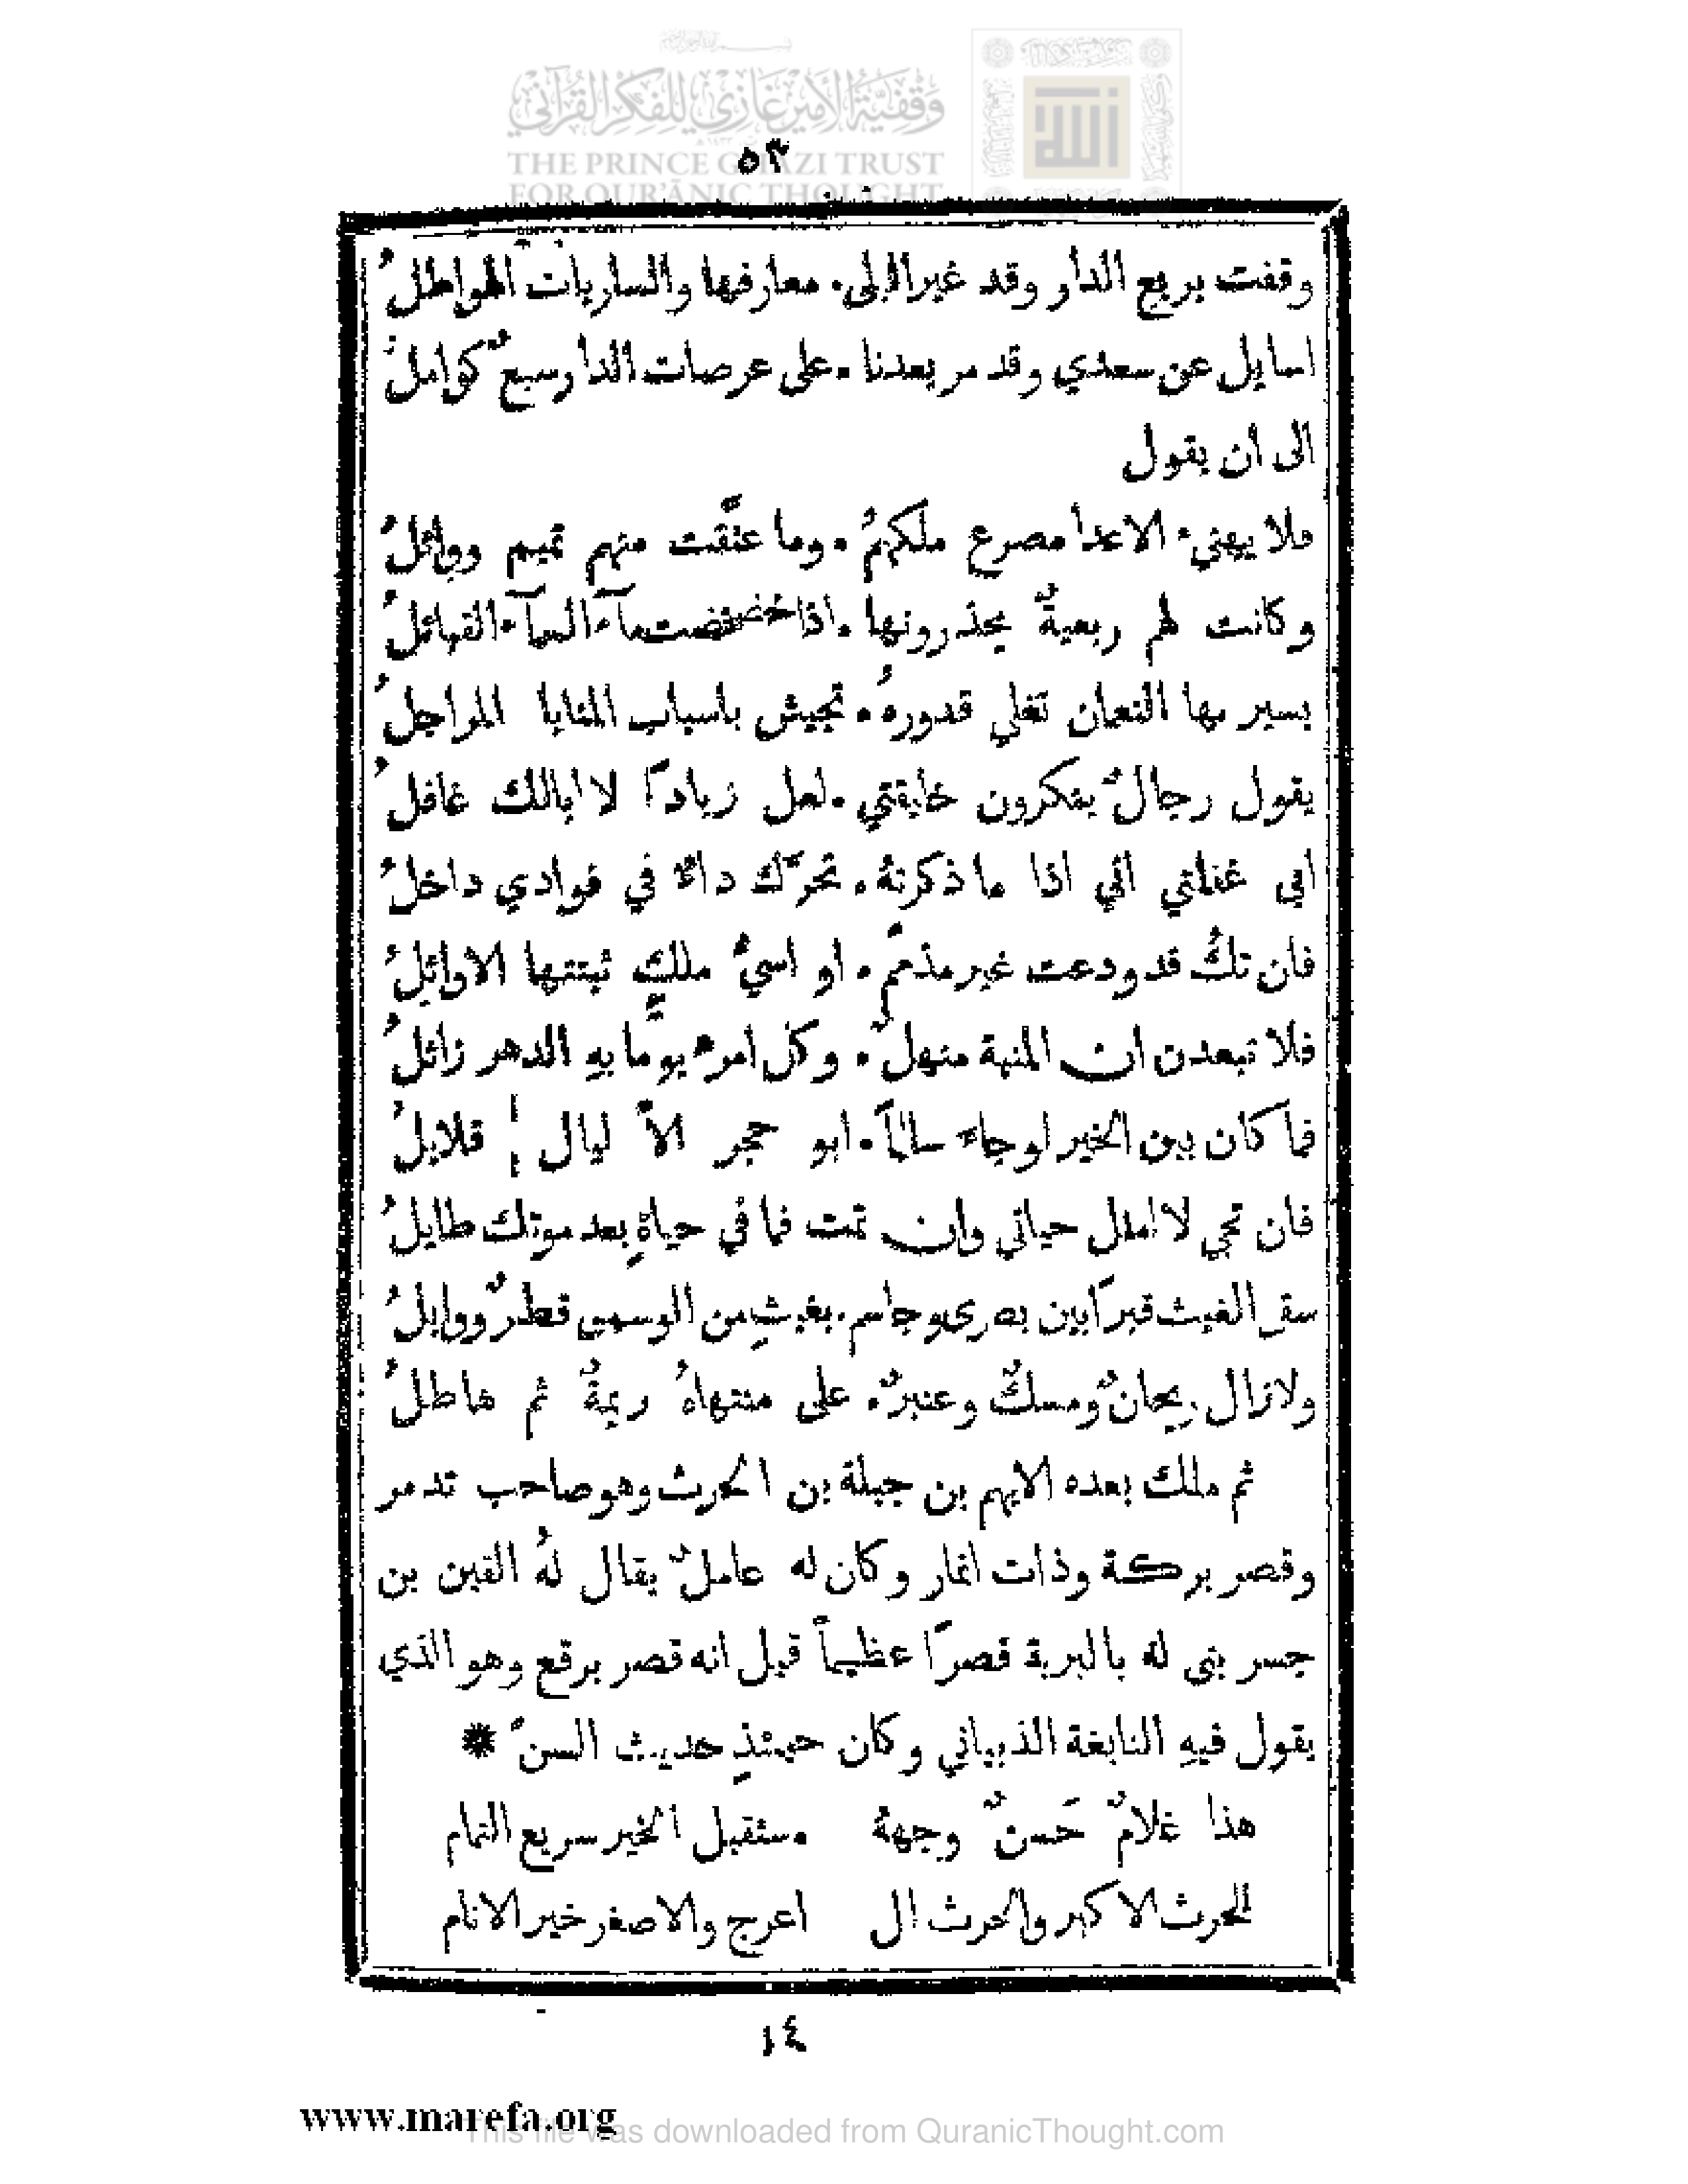 وقفية الأمير غازي للفكر القرآني
THE PRINCE GHAZI TRUST
FOR QUR'ĀNIC THOUGHT
٥٣
وقفت بربع الدار وقد غير البلى. معارفها والساريات الهواطلُ
اسايل عن سعدي وقد مر بعدنا. على عرصات الدار سبعٌ كواملُ
الى ان يقول
فلا يهنىء الاعدا مصرع ملكهمُ. وما عتَّقت منهم تميم ووائلُ
وكانت لهم ربعيةٌ يحذرونها. اذا خضخضت مآء السمآء القبائلُ
يسير بها النعمان تغلي قدورهُ. تجيش باسباب المنايا المراجلُ
يقول رجالٌ ينكرون خليقتي. لعل زيادًا لا ابالك غافلُ
ابى غفلتي اني اذا ما ذكرتهُ. تحرَّك داءٌ في فوادي داخلُ
فان تكُ قد ودعت غير مذممٍّ. او اسيُّ ملكٍ ثبتتها الاوائلُ
فلا تبعدن ان المنية منهلٌ. وكل امرءٍ يومًا بهِ الدهر زائلُ
فما كان بين الخير لو جاء سالمًا. ابو حجر الاَّ ليال قلايلُ
فان تحي لا املل حياتي وان تمت فما في حياةٍ بعد موتك طايلُ
سقى الغيث قبرًا بين بصرى وجاسم. بغيثٍ من الوسمي قطرٌ ووابلُ
ولا زال ريحانٌ ومسكٌ وعنبرٌ. على منتهاهُ ريمةٌ ثم هاطلُ
ثم ملك بعده الايهم بن جبلة بن الحرث وهو صاحب تدمر
وقصر بركة وذات انمار وكان له عاملٌ يقال لهُ القين بن
جسر بنى له بالبرية قصرًا عظيمًا قيل انه قصر برقع وهو الذي
يقول فيهِ النابغة الذبياني وكان حينئذٍ حديث السنّ *
هذا غلامٌ حَسنٌ وجههُ مستقبل الخير سريع التمام
للحرث الاكبر والحرث ال اعرج والاصغر خير الانام
١٤
www.marefa.org
This file was downloaded from QuranicThought.com